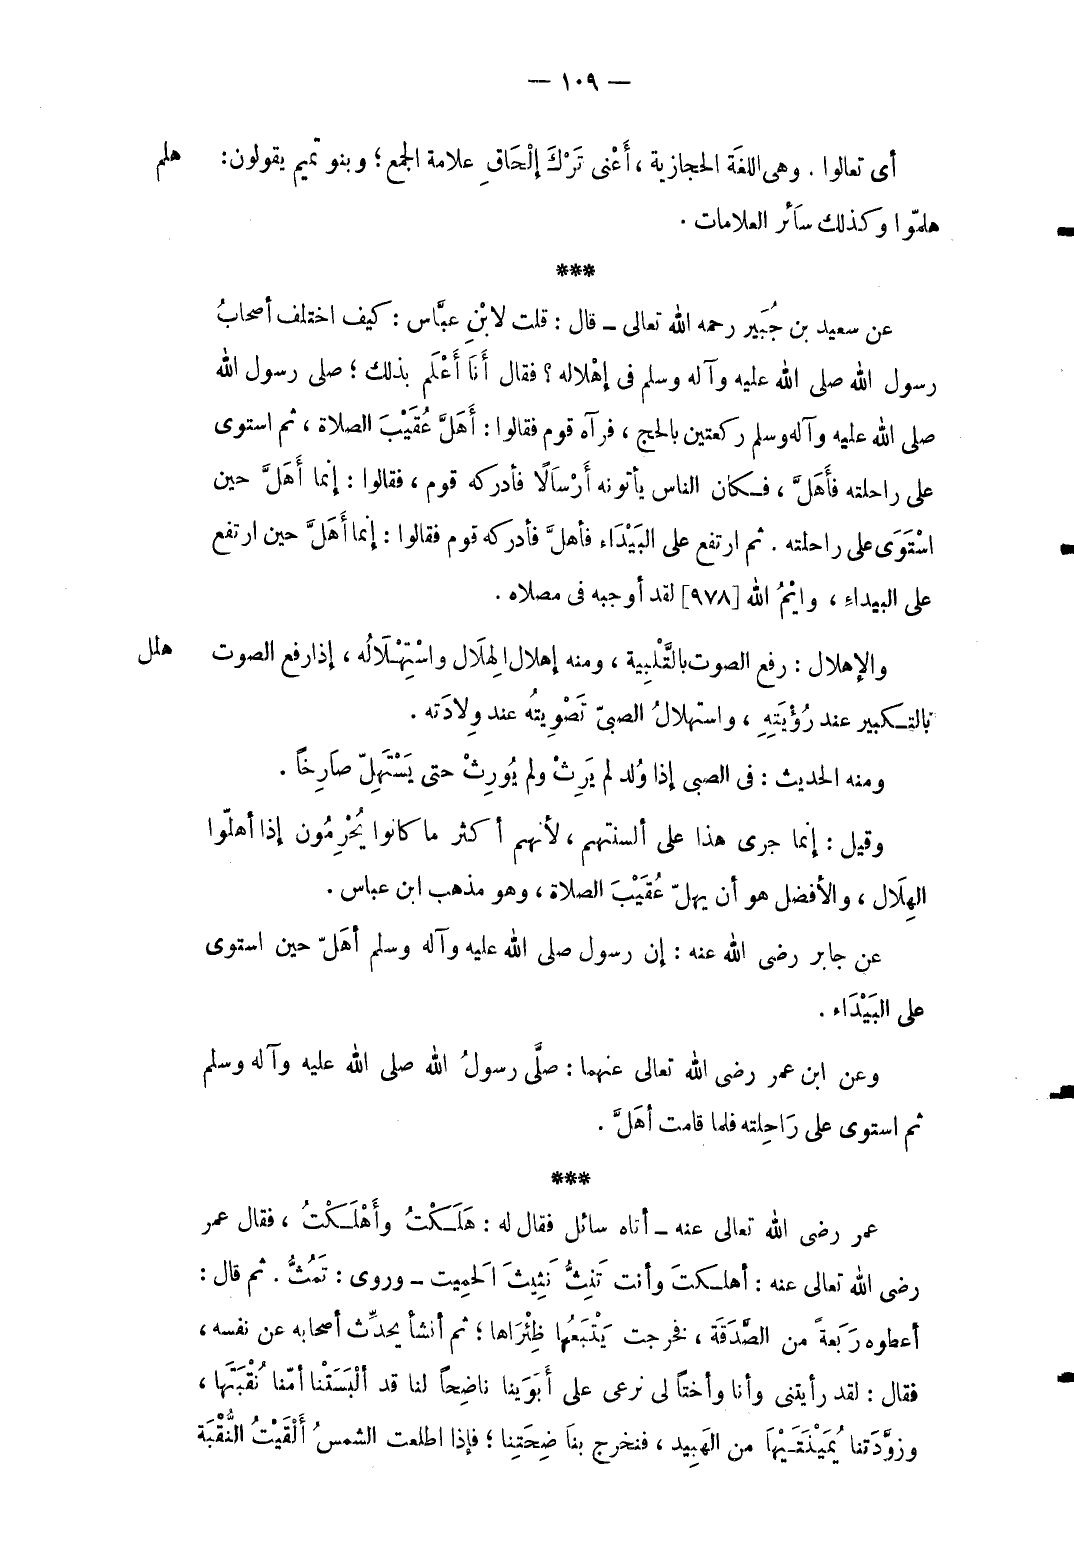 — ١٠٩ —
أى تعالوا . وهى اللغَة الحجازية ، أَعْنى تَرْكَ إلْحَاقِ علامة الجمع ؛ وبنو تميم يقولون : هلم
هلمّوا وكذلك سَائر العلامات .
***
عن سعيد بن جُبَير رحمه الله تعالى ــ قال : قلت لابْنِ عبَّاس : كيف اختلف أصحابُ
رسول الله صلى الله عليه وآله وسلم فى إهْلاله ؟ فقال أَنَا أَعْلَم بذلك ؛ صلى رسول الله
صلى الله عليه وآله وسلم ركعتين بالحج ، فرآه قوم فقالوا : أَهَلَّ عُقَيْبَ الصلاة ، ثم استوى
على راحلته فأَهَلَّ ، فكان الناس يأتونه أَرْسَالًا فأدركه قوم ، فقالوا : إنما أَهَلَّ حين
اسْتَوَى على راحلته . ثم ارتفع على البَيْدَاء فأهلَّ فأدركه قوم فقالوا : إنما أَهَلَّ حين ارتفع
على البيداءِ ، وايْمُ الله [٩٧٨] لقد أوجبه فى مصلاه .
والإهلال : رفع الصوت بالتَّلْبِية ، ومنه إهلال الهِلَال واسْتِهْلَالُه ، إذا رفع الصوت هلل
بالتكبير عند رُؤْيَتِهِ ، واستهلالُ الصبىّ تَصْوِيتُه عند وِلادَته .
ومنه الحديث : فى الصبى إذا وُلد لم يَرِثْ ولم يُورِثْ حتى يَسْتَهِلّ صَارِخًا .
وقيل : إنما جرى هذا على ألسنتهم ، لأنهم أكثر ما كانوا يُحْرِمُون إذا أهلّوا
الهِلَال ، والأفضل هو أن يهلّ عُقَيْبَ الصلاة ، وهو مذهب ابن عباس .
عن جابر رضى الله عنه : إن رسول صلى الله عليه وآله وسلم أهَلّ حين استوى
على البَيْدَاء .
وعن ابن عمر رضى الله تعالى عنهما : صلَّى رسولُ الله صلى الله عليه وآله وسلم
ثم استوى على رَاحِلته فلما قامت أهَلَّ .
***
عمر رضى الله تعالى عنه ــ أتاه سائل فقال له : هَلَكْتُ وأَهْلَكْتُ ، فقال عمر
رضى الله تعالى عنه : أهلكتَ وأنت تَنِثُّ نَثِيثَ الَحمِيت ــ وروى : تَمُثُّ . ثم قال :
أعطوه رَبَعةً من الصَّدَقَة ، فخرجت يَتْبَعُها ظِئْرَاها ؛ ثم أنشأ يحدِّث أصحابه عن نفسه ،
فقال : لقد رأيتنى وأنا وأختاً لى نرعى على أَبَوَينا ناضِحاً لنا قد ألْبَسَتْنا أمّنا نُقْبَتَها ،
وزوَّدَتنا يُمَيْنَتَيْهَا من الهَبِيد ، فنخرج بنَا ضِحَتِنا ؛ فإذا اطلعت الشمسُ أَلْقَيْتُ النُّقْبَة